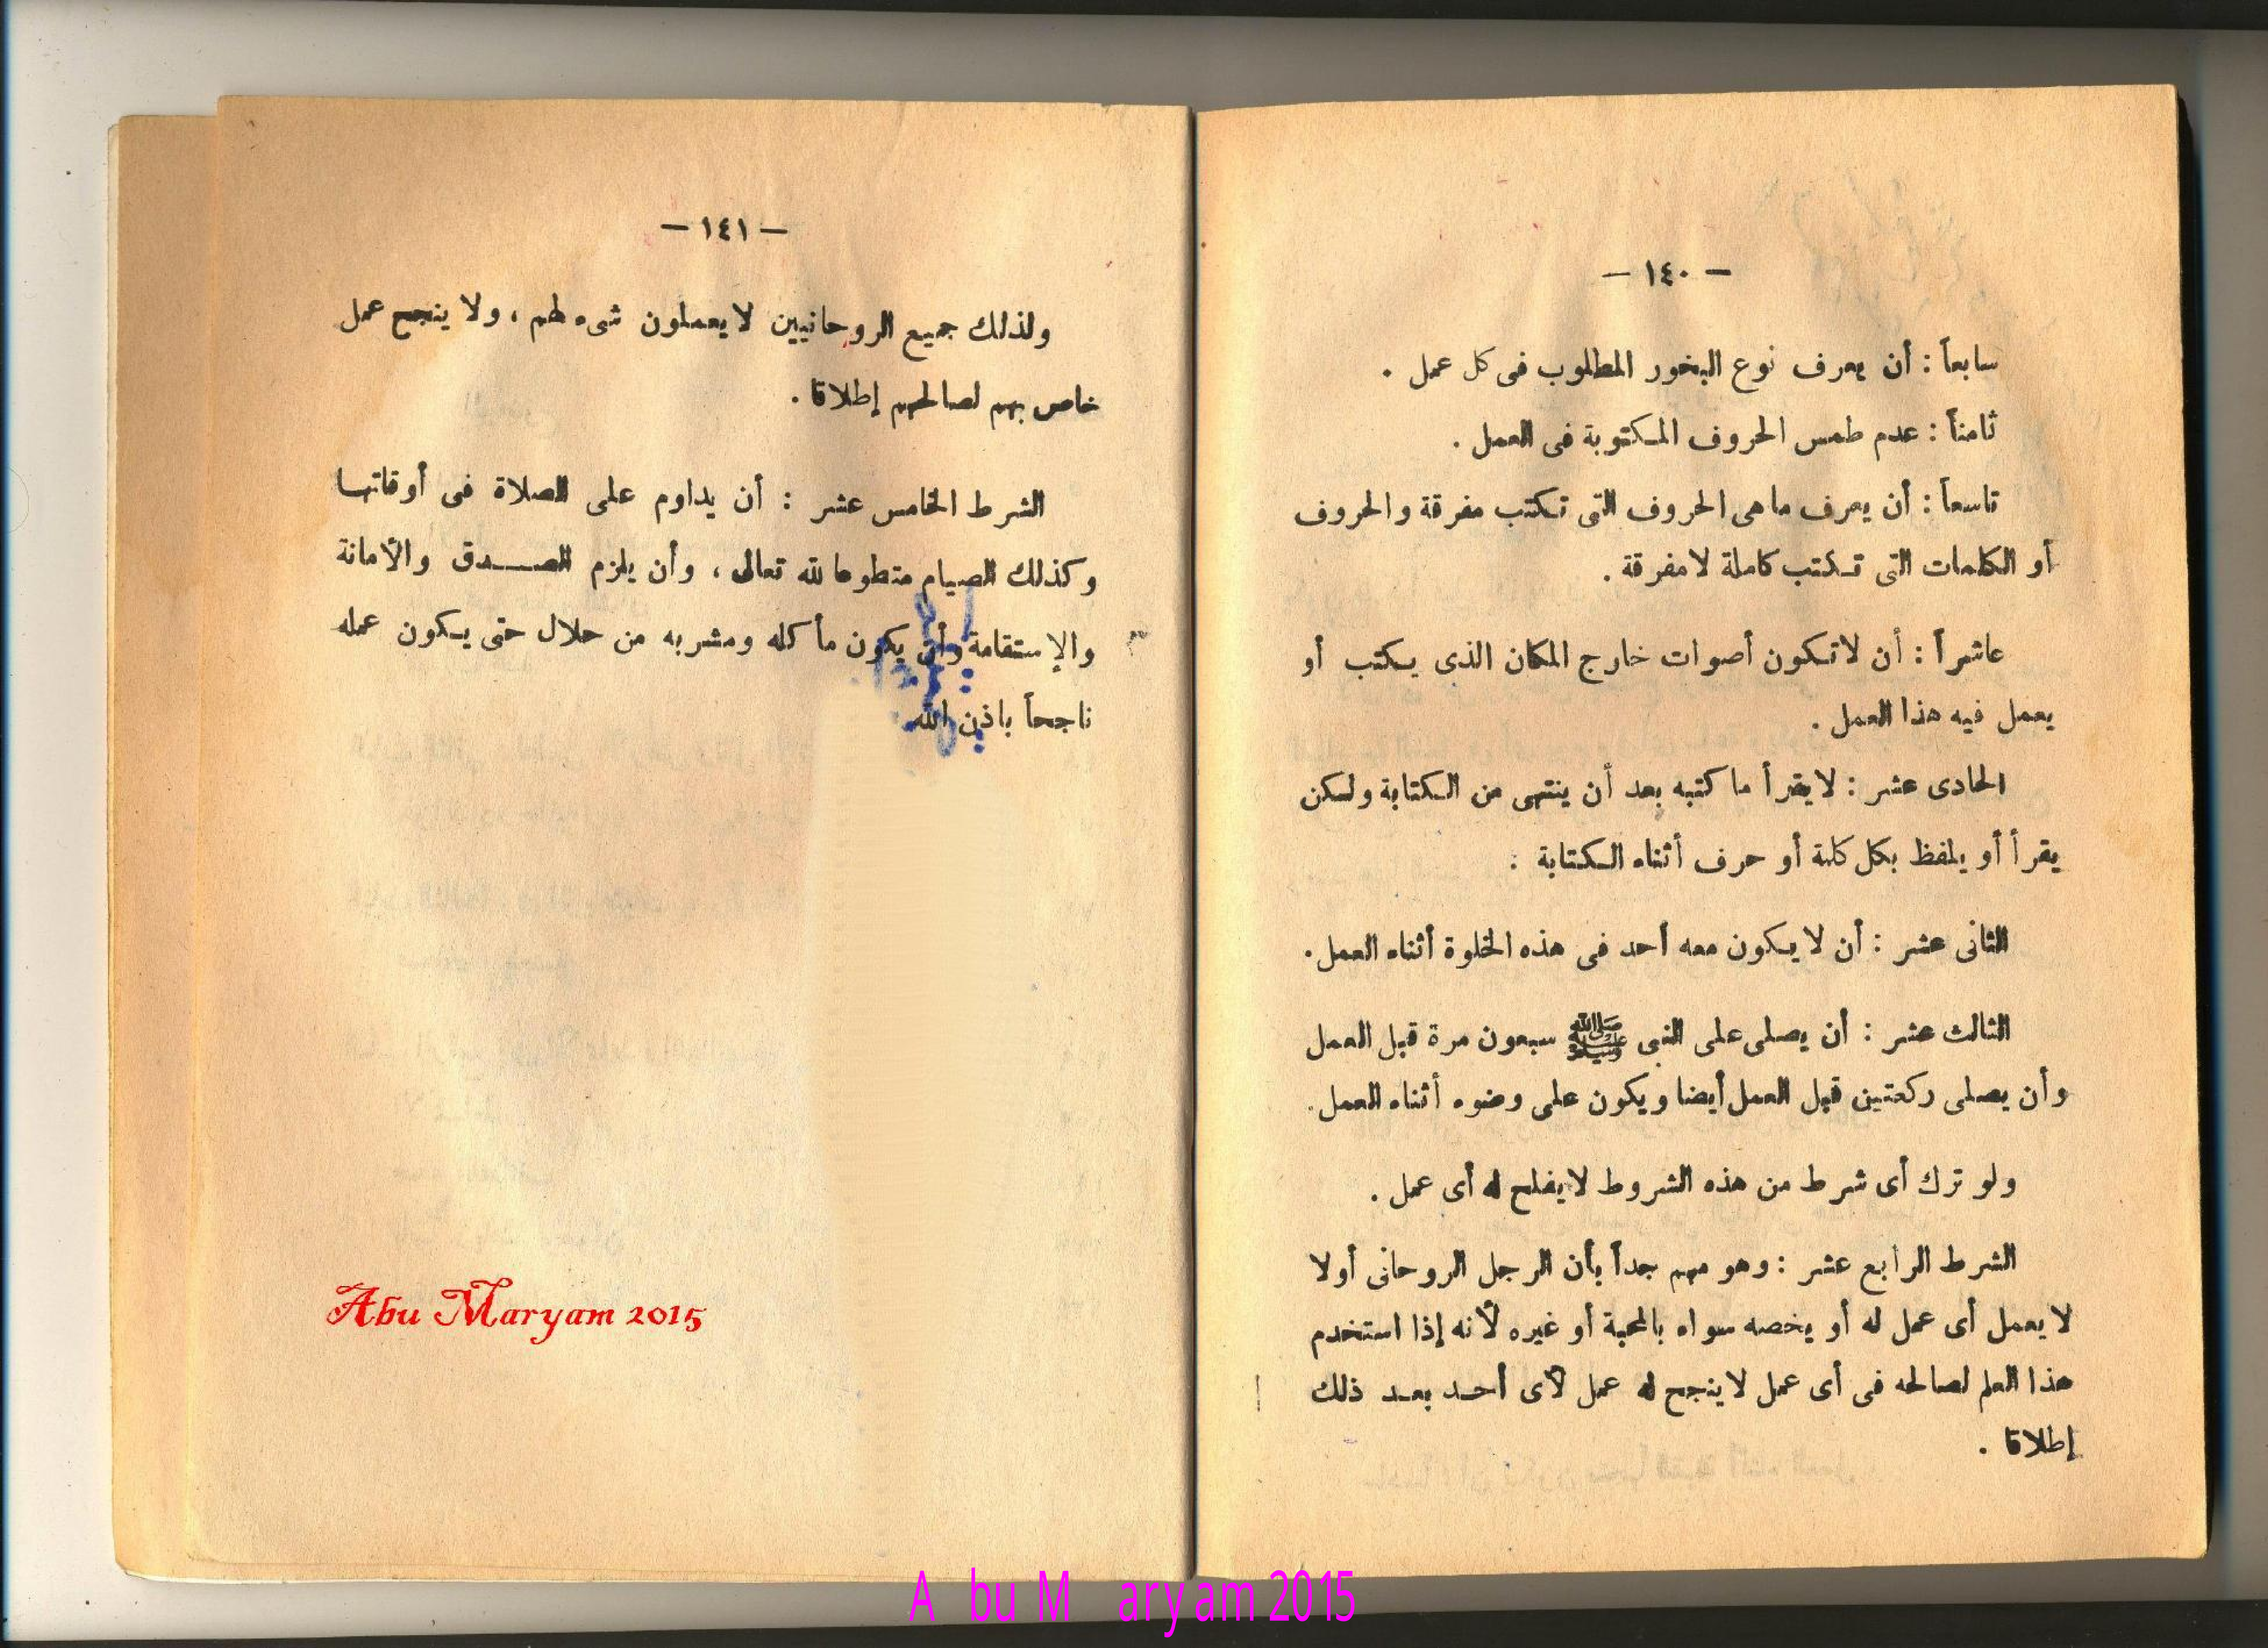 — ١٤٠ —
سابعاً : أن يعرف نوع البخور المطلوب فى كل عمل .
ثامناً : عدم طمس الحروف المكتوبة فى العمل .
تاسعاً : أن يعرف ما هى الحروف التى تكتب مفرقة والحروف
أو الكلمات التى تكتب كاملة لا مفرقة .
عاشراً : أن لا تكون أصوات خارج المكان الذى يكتب أو
يعمل فيه هذا العمل .
الحادى عشر : لا يقرأ ما كتبه بعد أن ينتهى من الكتابة ولكن
يقرأ أو يلفظ بكل كلمة أو حرف أثناء الكتابة :
الثانى عشر : أن لا يكون معه أحد فى هذه الخلوة أثناء العمل .
الثالث عشر : أن يصلى على النبى ﷺ سبعون مرة قبل العمل
وأن يصلى ركعتين قبل العمل أيضا ويكون على وضوء أثناء العمل .
ولو ترك أى شرط من هذه الشروط لا يفلح له أى عمل .
الشرط الرابع عشر : وهو مهم جداً بأن الرجل الروحانى أولا
لا يعمل أى عمل له أو يخصه سواء بالمحبة أو غيره لأنه إذا استخدم
هذا العلم لصالحه فى أى عمل لا ينجح له عمل لأى أحد بعد ذلك
إطلاقا .
— ١٤١ —
ولذلك جميع الروحانيين لا يعملون شىء لهم ، ولا ينجح عمل
خاص بهم لصالحهم إطلاقا .
الشرط الخامس عشر : أن يداوم على الصلاة فى أوقاتها
وكذلك الصيام متطوعا لله تعالى ، وأن يلزم الصدق والأمانة
والإستقامة وأن يكون مأكله ومشربه من حلال حتى يكون عمله
ناجحاً باذن الله
Abu Maryam 2015
A bu M aryam 2015